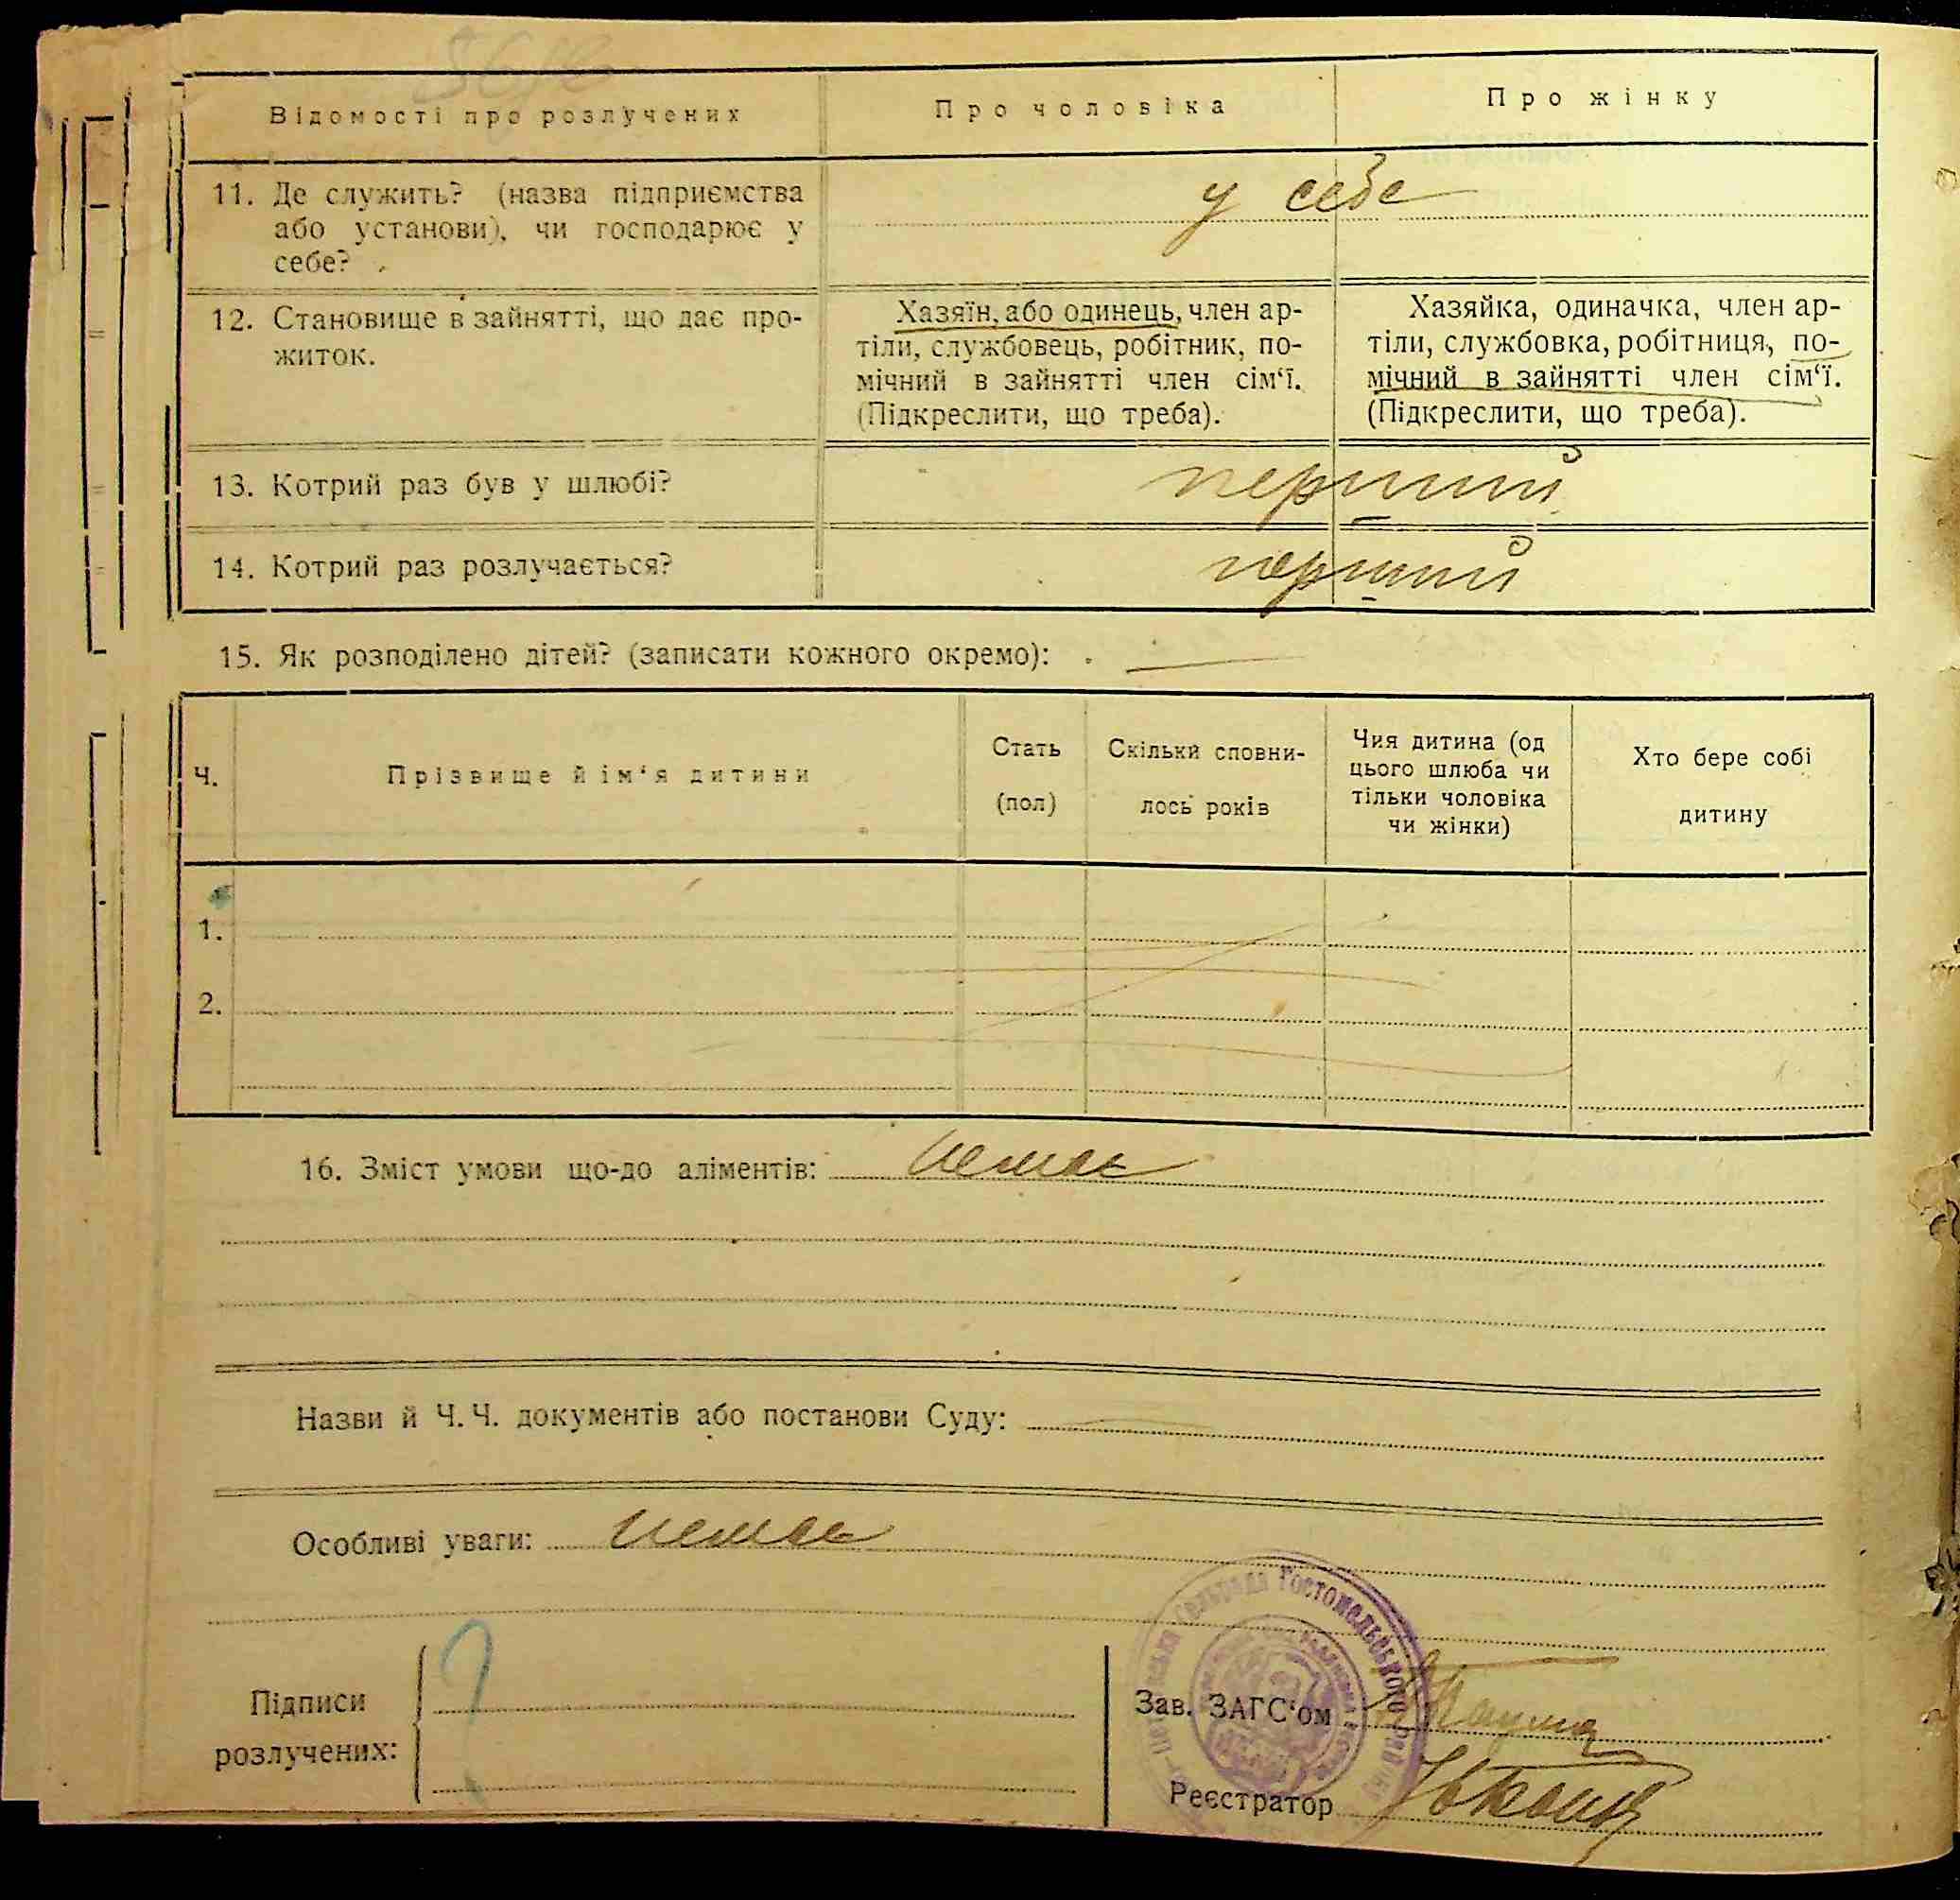 Відомості про розлучених
Про чоловіка
Про жінку
11. Де служить? (назва підприємства
або установи), чи господарює у
себе?
у себе
12. Становище в зайнятті, що дає про-
житок.
Хазяїн, або одинець, член ар-
тіли, службовець, робітник, по-
мічний в зайнятті член сім‘ї.
(Підкреслити, що треба).
Хазяйка, одиначка, член ар-
тіли, службовка, робітниця, по-
мічний в зайнятті член сім‘ї.
(Підкреслити, що треба).
13. Котрий раз був у шлюбі?
перший
14. Котрий раз розлучається?
перший
15. Як розподілено дітей? (записати кожного окремо):
Ч.
Прізвище й ім‘я дитини
Стать
(пол)
Скільки сповни-
лось років
Чия дитина (од
цього шлюба чи
тільки чоловіка
чи жінки)
Хто бере собі
дитину
1.
2.
16. Зміст умови що-до аліментів: немає
Назви й Ч. Ч. документів або постанови Суду:
Особливі уваги: немає
Сельрада Гостомельського
Підписи
розлучених:
Зав. ЗАГС‘ом
Реєстратор